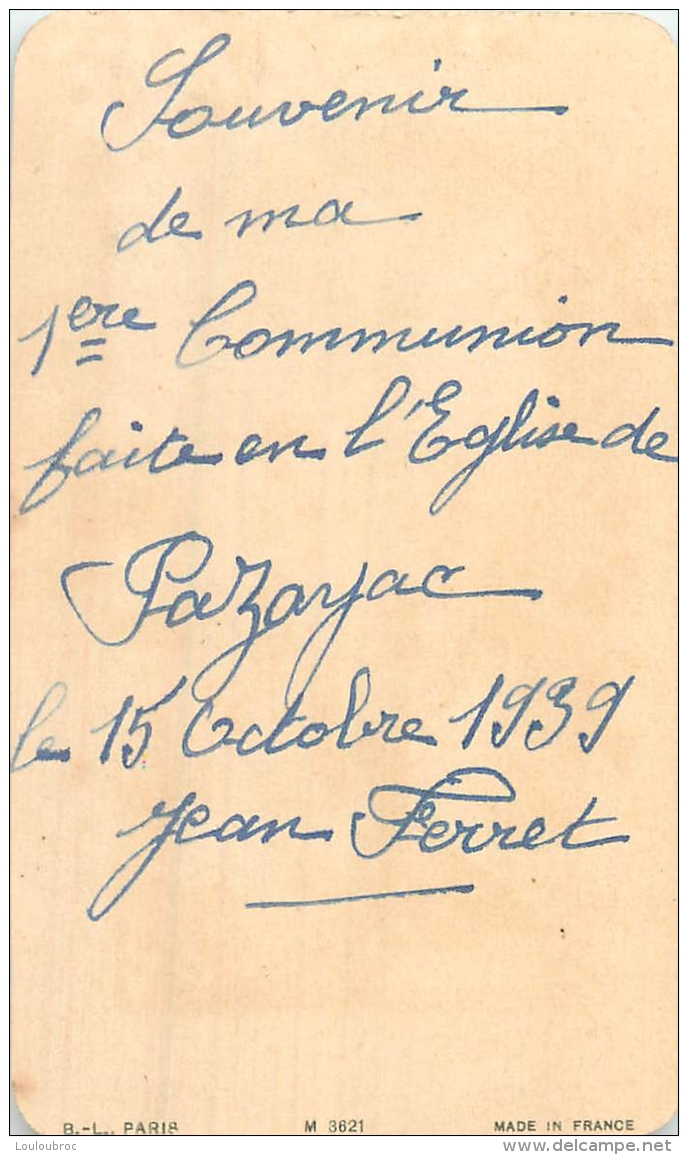 Souvenir
de ma
1ère Communion
faite en l'Eglise de
Pazayac
le 15 Octobre 1939
Jean Ferret
B.-L., PARIS M 3621 MADE IN FRANCE
Louloubroc www.delcampe.net